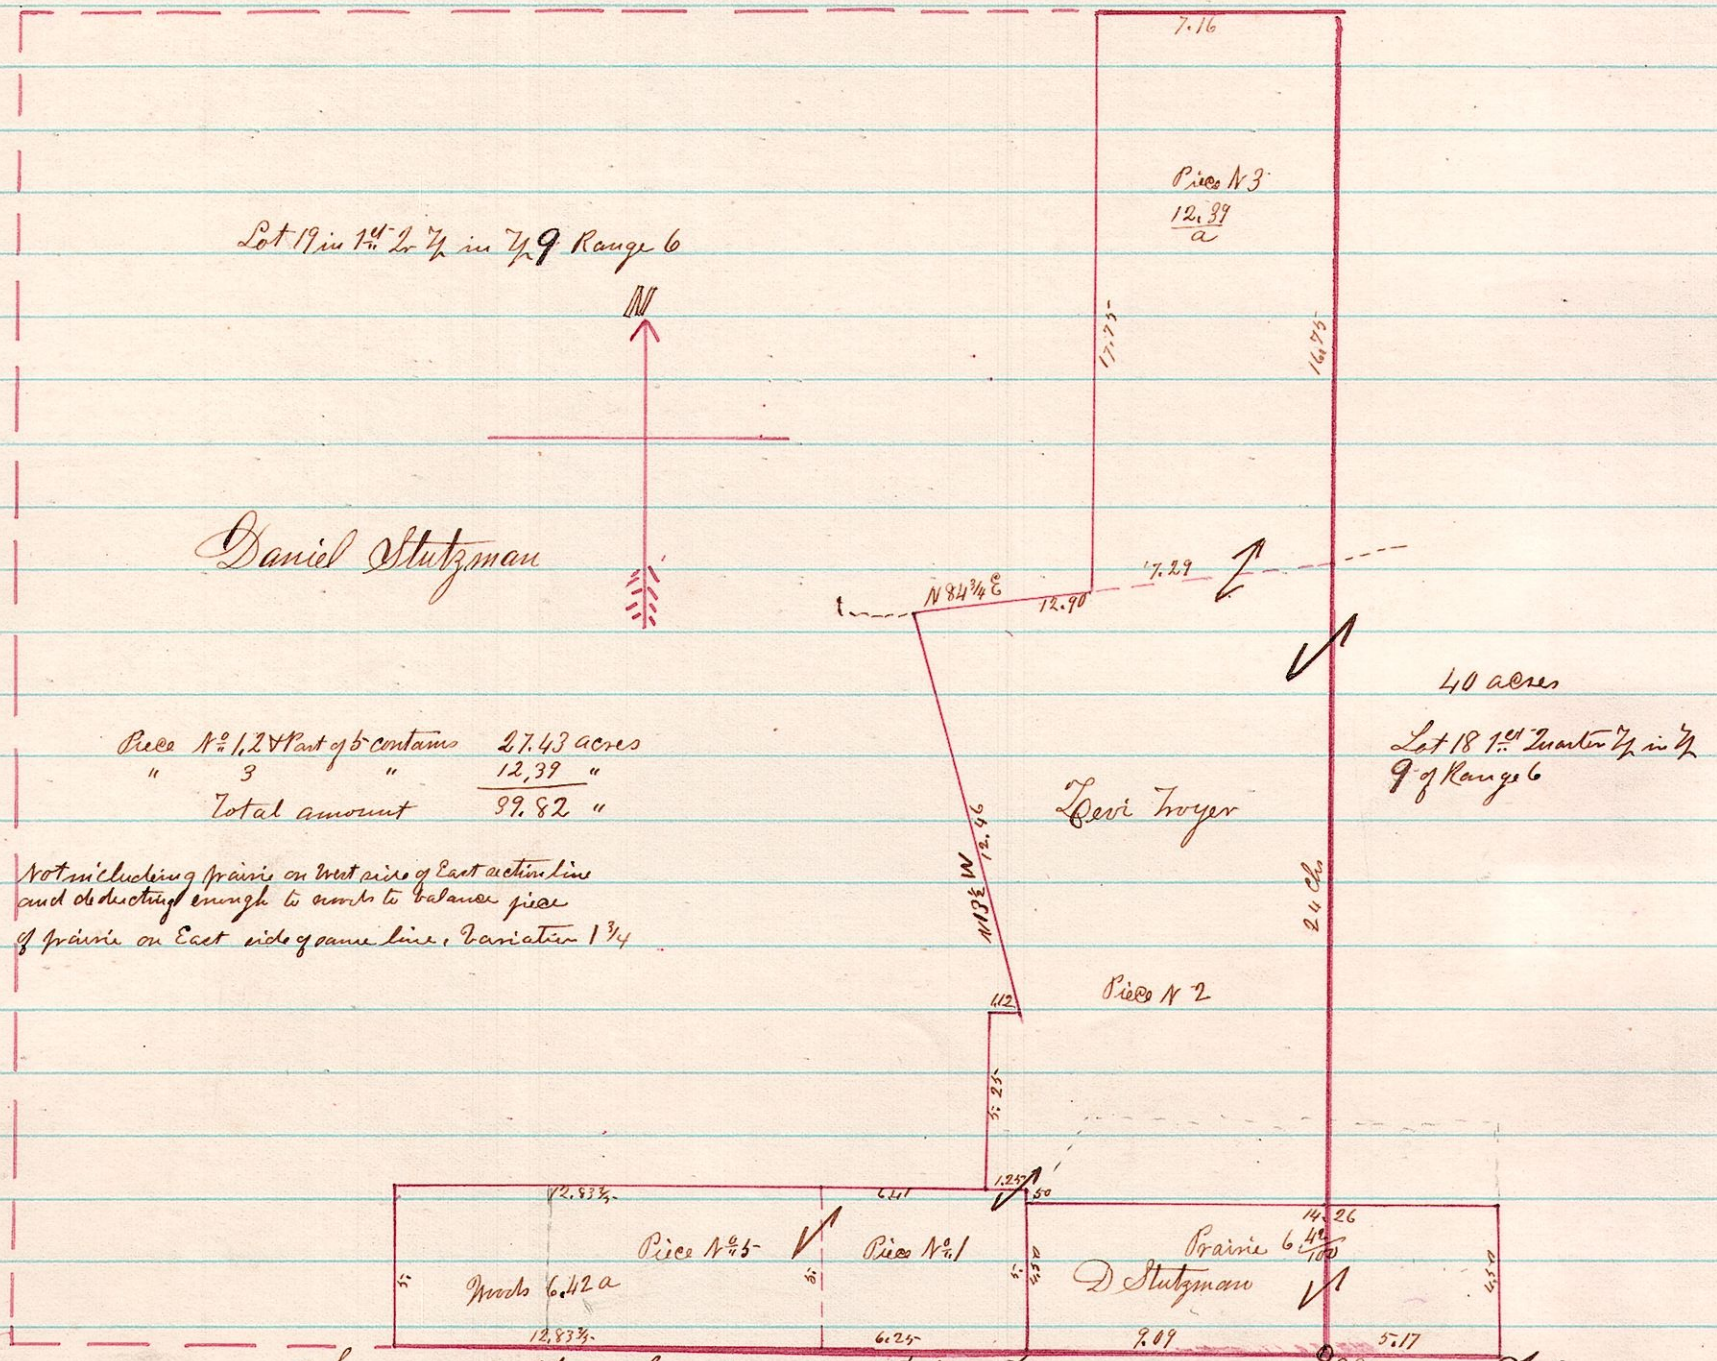 7.16
Piece N 3
12.39
a
Lot 19 in 1st 2r Tp in Tp 9 Range 6
N
17.75
16.75
Daniel Stutzman
N 84 3/4 E
12.90
7.29
40 acres
Lot 18 1st Quarter Tp in Tp
9 of Range 6
Piece No 1, 2 & Part of 5 contains 27.43 acres
" 3 " 12,39 "
Total amount 39.82 "
Levi Troyer
12.46
N 13 1/2 W
24 Ch
Not including prairie on West side of East section line
and deducting enough to woods to balance piece
of prairie on East side of same line, Variation 1 3/4
1.12
Piece N 2
5.25
12.83 3/4
6.41
1.25
50
14.26
Piece No 5
Piece No 1
Prairie 6 42/100
Woods 6.42 a
D Stutzman
5.
5.
5.
4.50
4.50
12.83 3/4
6.25
9.09
5.17